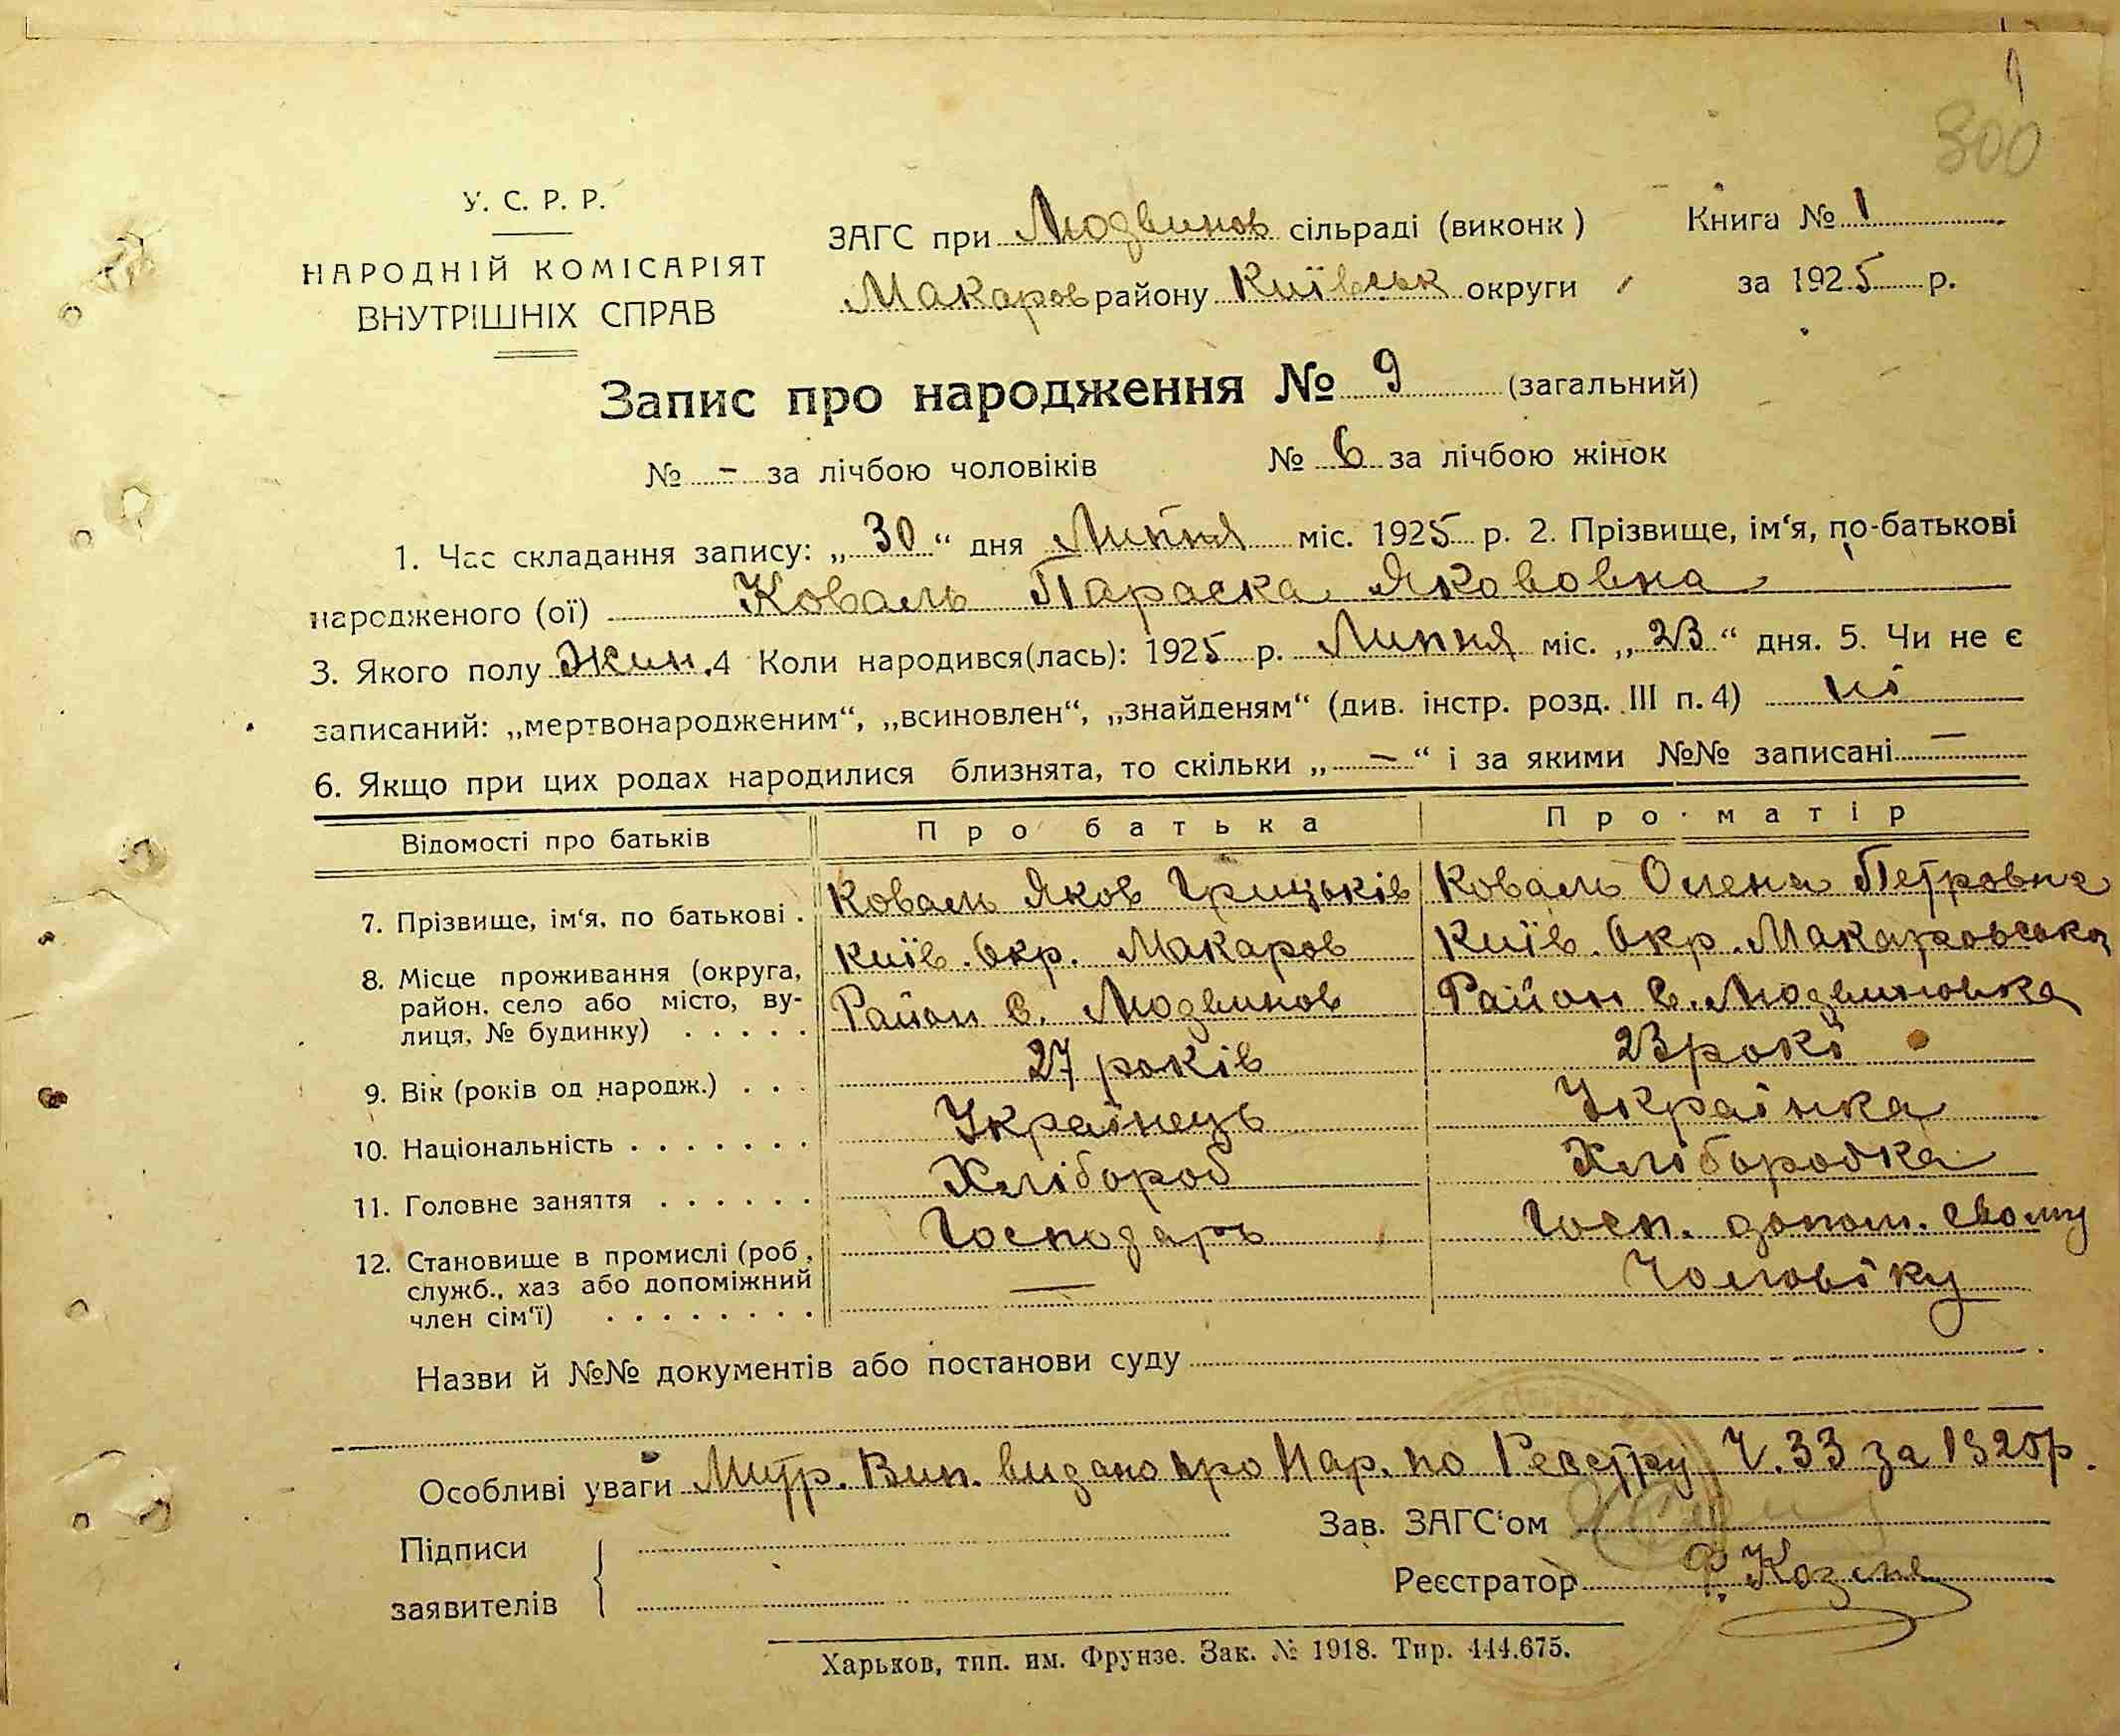 300
У. С. Р. Р.
НАРОДНІЙ КОМІСАРІЯТ
ВНУТРІШНІХ СПРАВ
ЗАГС при Людвинов сільраді (виконк)
Макаров району Київськ округи
Книга № 1
за 1925 р.
Запис про народження № 9 (загальний)
№ - за лічбою чоловіків № 6 за лічбою жінок
1. Час складання запису: „30“ дня Липня міс. 1925 р. 2. Прізвище, ім‘я, по-батькові
народженого (ої) Коваль Параска Якововна
3. Якого полу Жин. 4 Коли народився(лась): 1925 р. Липня міс. „23“ дня. 5. Чи не є
записаний: „мертвонародженим“, „всиновлен“, „знайденям“ (див. інстр. розд. III п. 4) ні
6. Якщо при цих родах народилися близнята, то скільки „—“ і за якими №№ записані —
Відомості про батьків Про батька Про матір
7. Прізвище, ім‘я, по батькові . Коваль Яков Грицьків Коваль Олена Петровна
8. Місце проживання (округа, Київ. Окр. Макаров Київ. Окр. Макаровська
район, село або місто, ву- Район с. Людвинов Район с. Людвиновка
лиця, № будинку) . . . . .
9. Вік (років од народж.) . . . 27 років 23 рокі
10. Національність . . . . . . . Українець Українка
11. Головне заняття . . . . . . Хлібороб Хлібородка
12. Становище в промислі (роб., Господарь Госп. допом. свому
служб., хаз або допоміжний — Чоловіку
член сім‘ї) . . . . . . . .
Назви й №№ документів або постанови суду
Особливі уваги Митр. Вип. видано про Нар. по Реєстру Ч. 33 за 1925р.
Підписи
заявителів
Зав. ЗАГС‘ом
Реєстратор
Харьков, тип. им. Фрунзе. Зак. № 1918. Тир. 444.675.